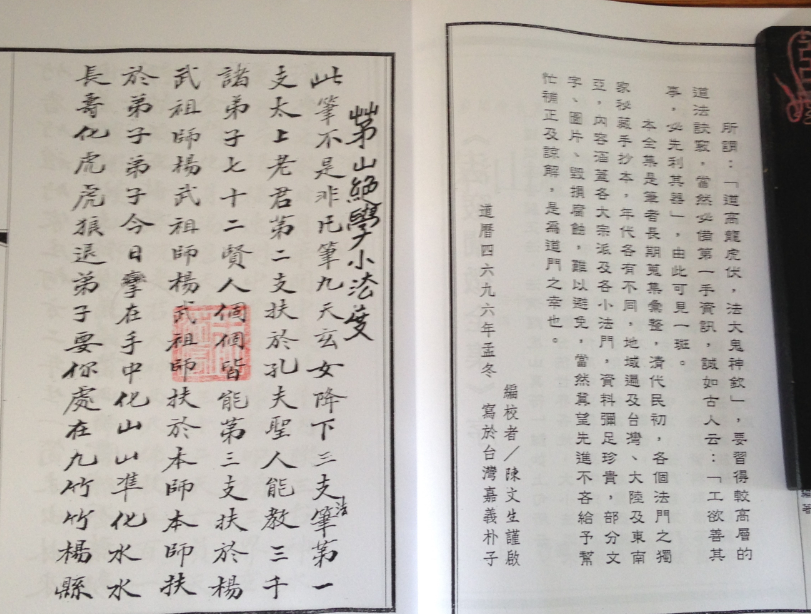 所謂：「道高龍虎伏，法大鬼神欽」，要習得較高層的
道法訣竅，當然必備第一手資訊，誠如古人云：「工欲善其
事，必先利其器」，由此可見一斑。
本全集是筆者長期蒐集彙整，清代民初，各個法門之獨
家秘藏手抄本，年代各有不同，地域遍及台灣、大陸及東南
亞，內容涵蓋各大宗派及各小法門，資料彌足珍貴，部分文
字、圖片、毀損腐蝕，難以避免，當然冀望先進不吝給予幫
忙補正及諒解，是為道門之幸也。
編校者／陳文生謹啟
道曆四六九六年孟冬 寫於台灣嘉義朴子
茅山絕學小法度
此筆不是非凡筆九天玄女降下三支筆法第一
支太上老君第二支扶於孔夫聖人能教三千
諸弟子七十二賢人個個皆能第三支扶於楊
武祖師楊武祖師楊武祖師扶於本師本師扶
於弟子弟子今日拏在手中化山山準化水水
長壽化虎虎狼退弟子要你處在九竹竹楊縣